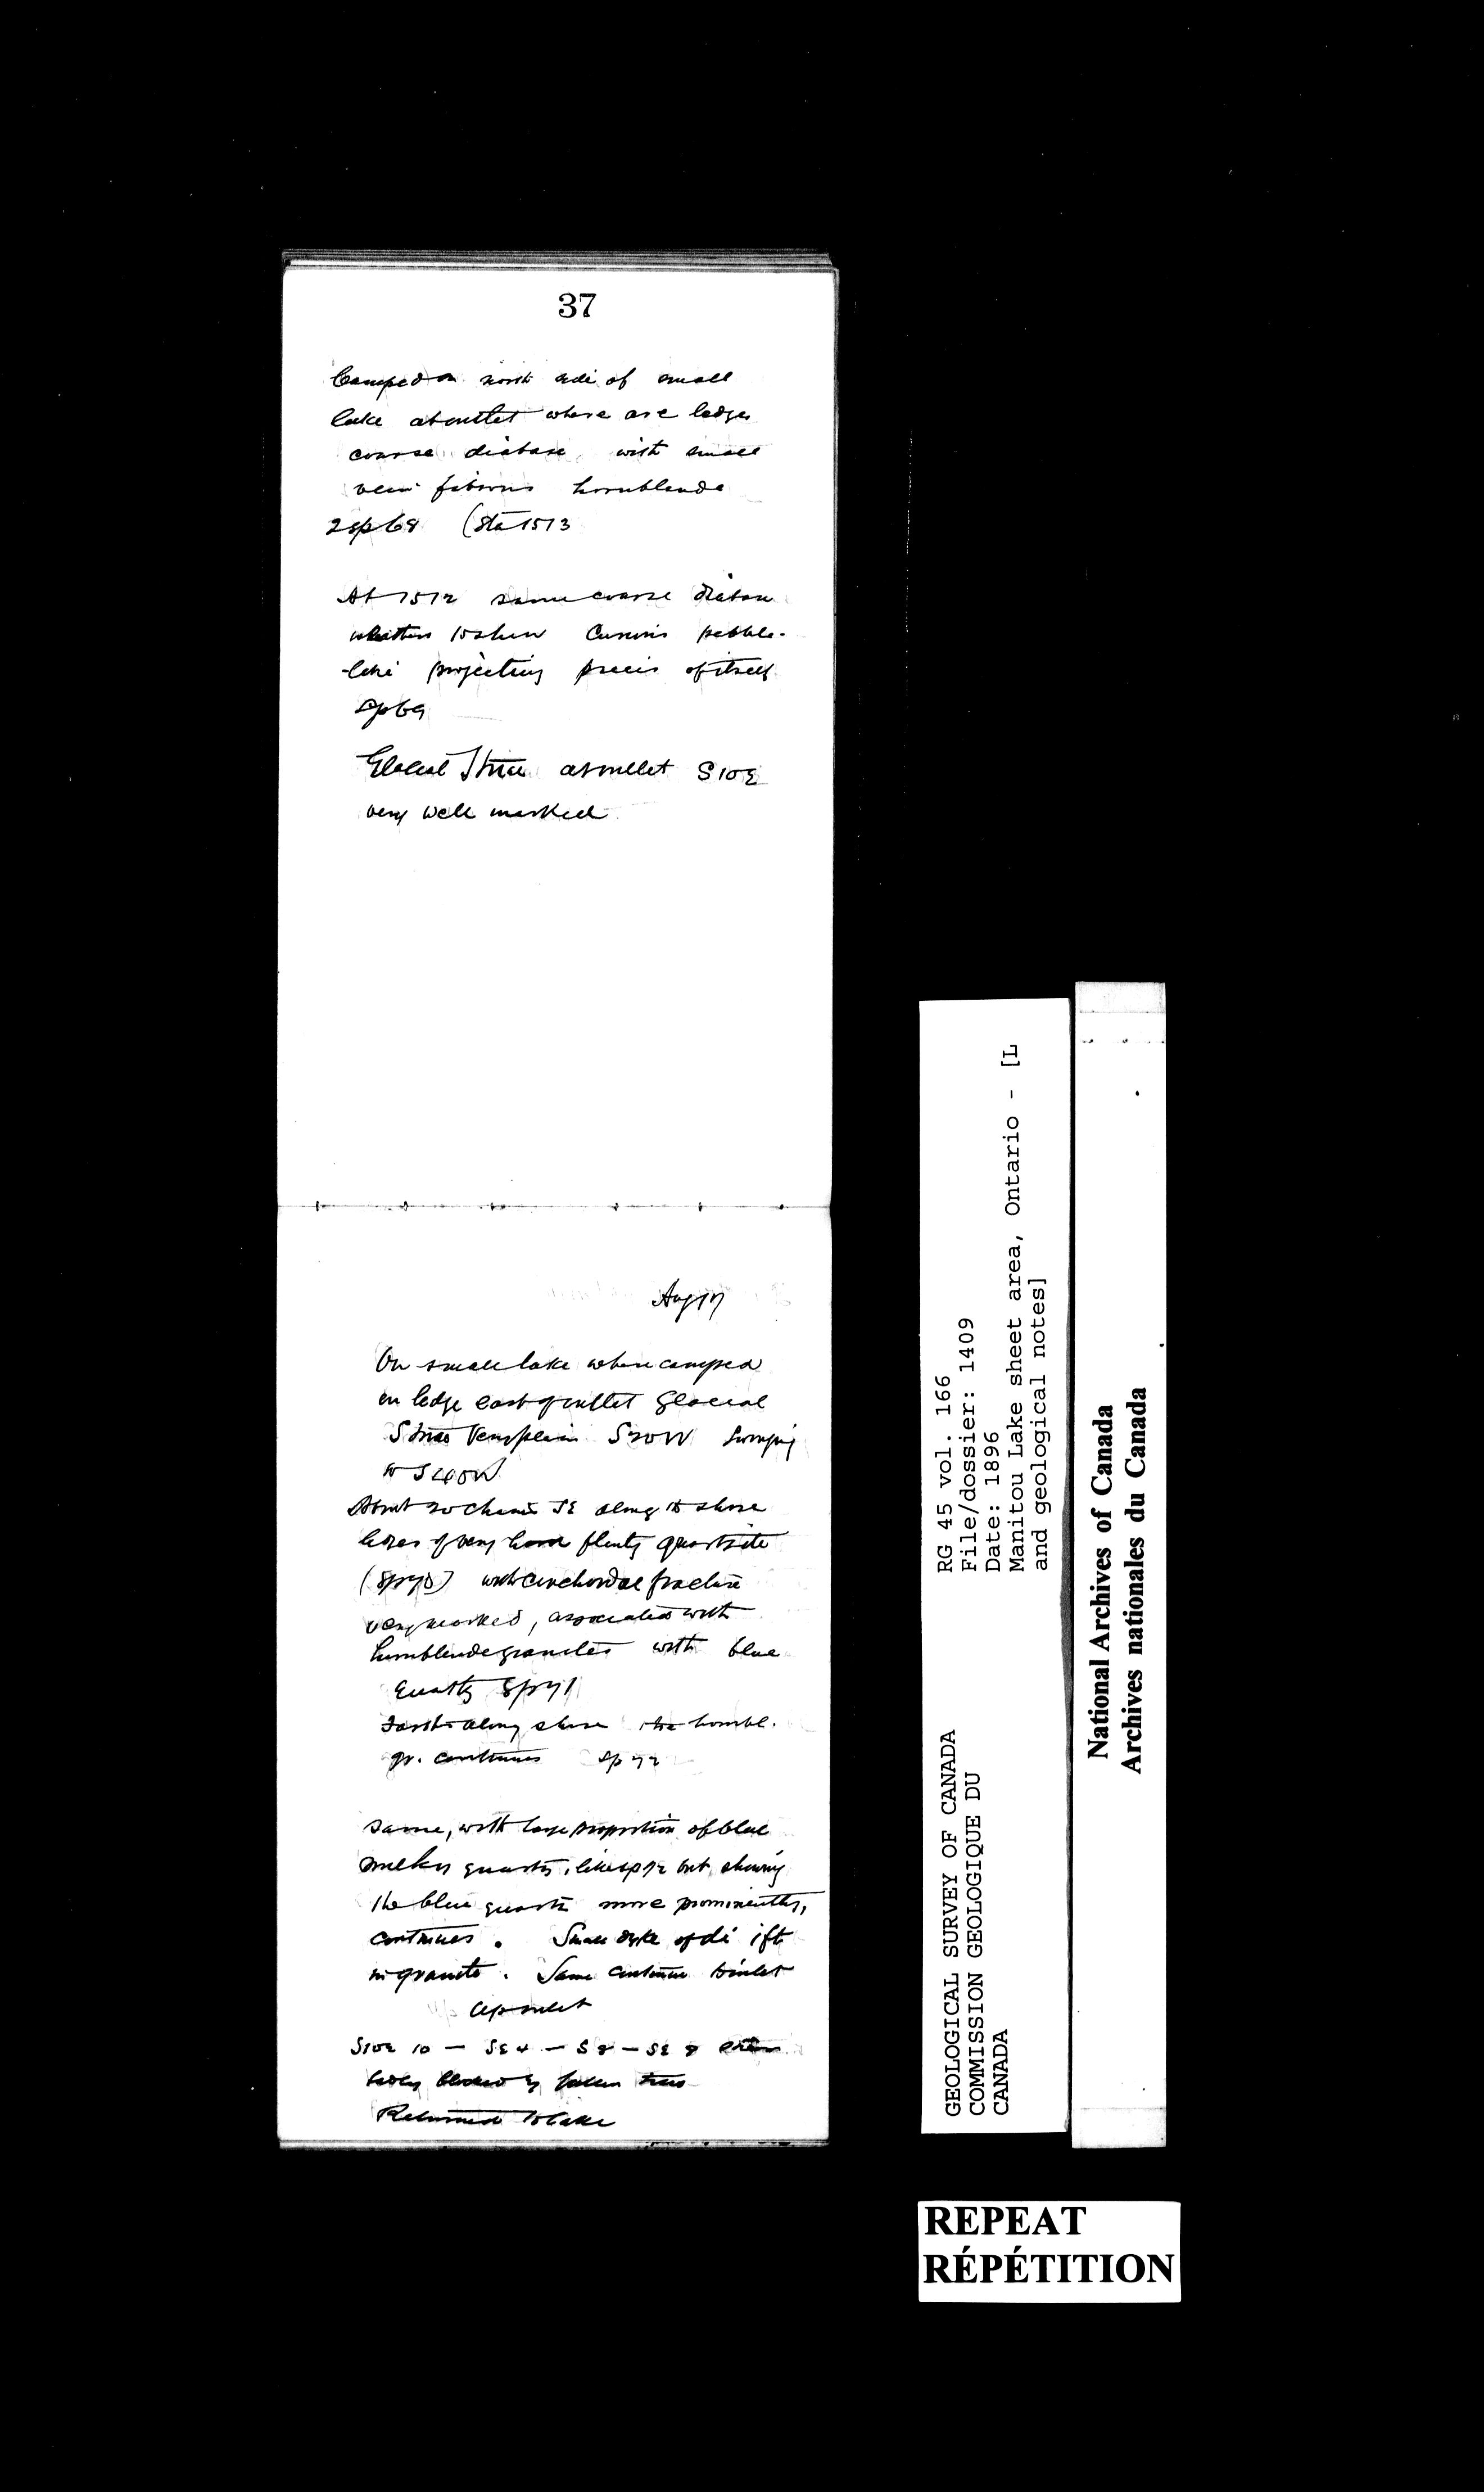 37
Camped on north side of small
lake at outlet where are ledges
coarse diabase with small
vein fibrous hornblende
2 sp 68 (Sta 1513
At 1512 same coarse diabase
weathers to show curious pebble-
-like projecting pieces of itself
Sp 69
Glacial Striae at outlet S10E
very well marked
Aug 17
On small lake where camped
on ledge east of outlet Glacial
Striae very plain S20W swinging
to S40W
About 20 chains SE along the shore
ledges of very hard flinty quartzite
(Sp 70) with conchoidal fracture
very marked, associated with
hornblende granites with blue
quartz Sp 71
along shore the hornbl.
gr. continues Sp 72
Same, with large proportion of blue
milky quartz, like sp 72 but showing
the blue quartz more prominently,
continues. Small dyke of di 1 ft
in granite. Same continue to inlet
Up inlet
S10E 10 — SE 4 — S 8 — SE 8
by fallen trees
Returned to lake
GEOLOGICAL SURVEY OF CANADA
COMMISSION GEOLOGIQUE DU
CANADA
RG 45 vol. 166
File/dossier: 1409
Date: 1896
Manitou Lake sheet area, Ontario - [L
and geological notes]
National Archives of Canada
Archives nationales du Canada
REPEAT
RÉPÉTITION